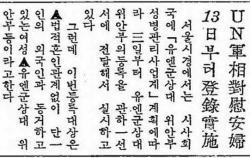 UN軍相對慰安婦
13日부터 登錄實施
서울시경에서는 시사회
국에「유엔군상대 위안부
성병관리사업계」계획에따
라 一三일부터 유엔군상대
위안부의등록을 관하一선
서에 전달해서 실시하고
있다
그런데 이번등록대상은
▲법적혼인관계없이 단一
인의 외국인과 동거하고
있는여성▲유엔군상대 위
안부등이라고한다